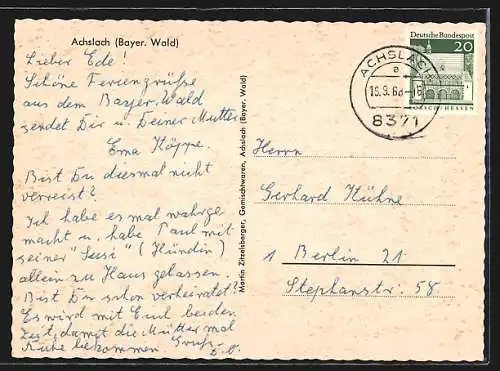 Achslach (Bayer. Wald)
Lieber Ede!
Schöne Feriengrüsse
aus dem Bayer. Wald
sendet Dir u. Deiner Mutter
Erna Köppe.
Bist Du diesmal nicht
verreist?
Ich habe es mal wahrge
macht u. habe Paul mit
seiner "Susi" (Hündin)
allein zu Haus gelassen.
Bist Du schon verheiratet?
Es wird mit Euch beiden
Zeit, damit die Mütter mal
Ruhe bekommen. Gruß
Martin Zitzelsberger, Gemischtwaren, Achslach (Bayer. Wald)
Deutsche Bundespost
20
LORSCH · HESSEN
ACHSLACH
8371
Herrn
Gerhard Kühne
1 Berlin 21
Stephanstr. 58